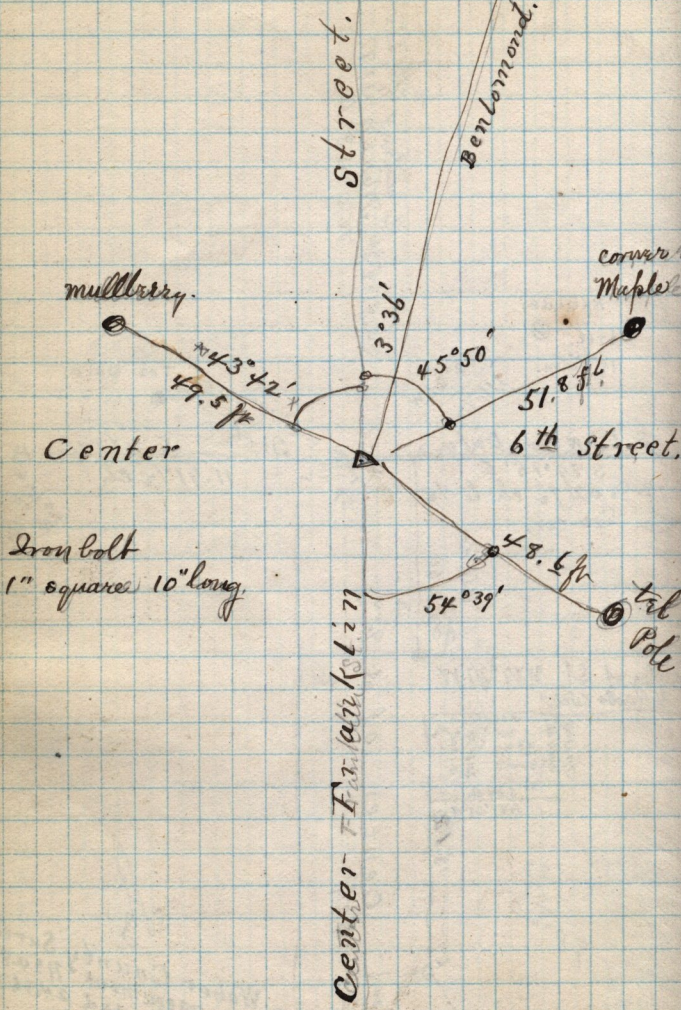 Street.
Benlomond.
mullberry.
corner
Maple
3°36'
43°42'
45°50'
49.5 ft
51.8 ft.
Center
6th Street.
Iron bolt
1" square 10" long.
48.6 ft
54°39'
tel
Pole
Center Franklin